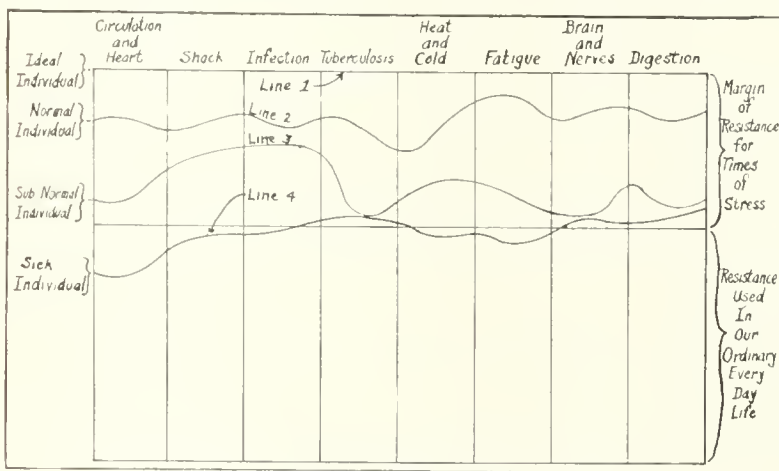 Circulation
and
Heart
Shock
Infection
Tuberculosis
Heat
and
Cold
Fatigue
Brain
and
Nerves
Digestion
Ideal
Individual
Line 1
Normal
Individual
Line 2
Line 3
Sub Normal
Individual
Line 4
Sick
Individual
Margin
of
Resistance
for
Times
of
Stress
Resistance
Used
In
Our
Ordinary
Every
Day
Life